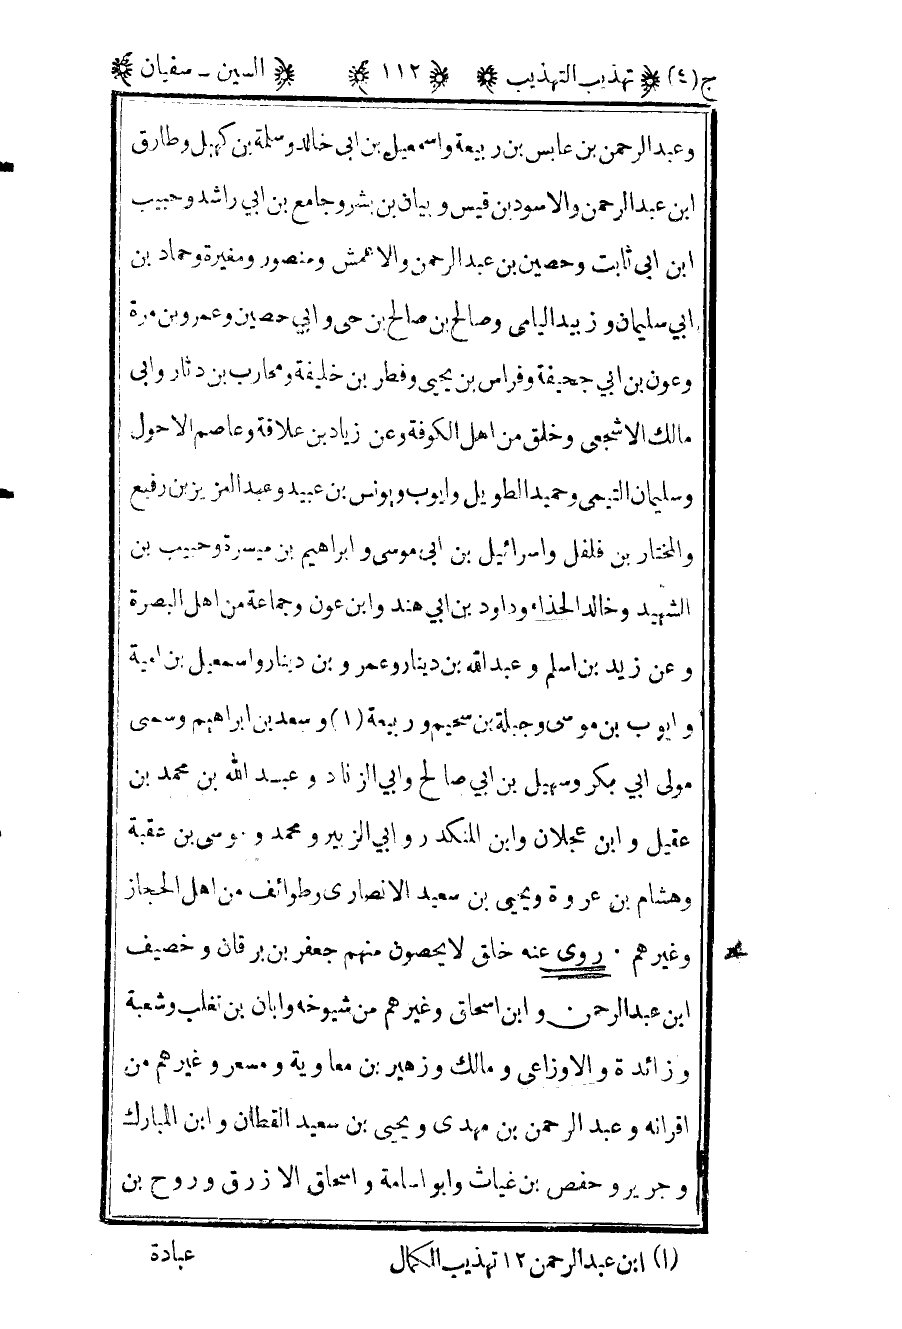 ج(٤) ﴿ تهذيب التهذيب ﴾ ﴿ ١١٢ ﴾ ﴿ السين - سفيان ﴾
وعبدالرحمن بن عابس بن ربيعة واسمعيل بن ابى خالد وسلمة بن كهيل وطارق
ابن عبدالرحمن والاسود بن قيس و بيان بن بشر وجامع بن ابي راشد وحبيب
ابن ابى ثابت وحصين بن عبدالرحمن والاعمش ومنصور ومغيرة وحماد بن
ابي سليمان و زبيد اليامى وصالح بن صالح بن حى و ابي حصين وعمرو بن مرة
وعون بن ابي جحيفة وفراس بن يحيى وفطر بن خليفة ومحارب بن دثار وابى
مالك الاشجعى وخلق من اهل الكوفة وعن زياد بن علاقة وعاصم الاحول
وسليمان التيمى وحميد الطويل وايوب ويونس بن عبيد وعبد العزيز بن رفيع
والمختار بن فلفل واسرائيل بن ابى موسى و ابراهيم بن ميسرة وحبيب بن
الشهيد وخالد الحذاء وداود بن ابي هند وابن عون وجماعة من اهل البصرة
و عن زيد بن اسلم و عبدالله بن دينار وعمر و بن دينار واسمعيل بن امية
و ايوب بن موسى وجبلة بن سحيم و ربيعة (١) و سعد بن ابراهيم وسمى
مولى ابي بكر وسهيل بن ابي صالح وابي الزناد و عبد الله بن محمد بن
عقيل و ابن عجلان وابن المنكدر و ابي الزبير و محمد و موسى بن عقبة
وهشام بن عروة ويحيى بن سعيد الانصارى وطوائف من اهل الحجاز
وغيرهم . روى عنه خلق لا يحصون منهم جعفر بن برقان و خصيف
ابن عبدالرحمن و ابن اسحاق وغيرهم من شيوخه وابان بن تغلب وشعبة
و زائدة و الاوزاعى و مالك و زهير بن معاوية و مسعر و غيرهم من
اقرانه و عبد الرحمن بن مهدى و يحيى بن سعيد القطان و ابن المبارك
و جرير و حفص بن غياث وابو اسامة و اسحاق الازرق و روح بن
(١) ابن عبدالرحمن ١٢ تهذيب الكمال
عبادة